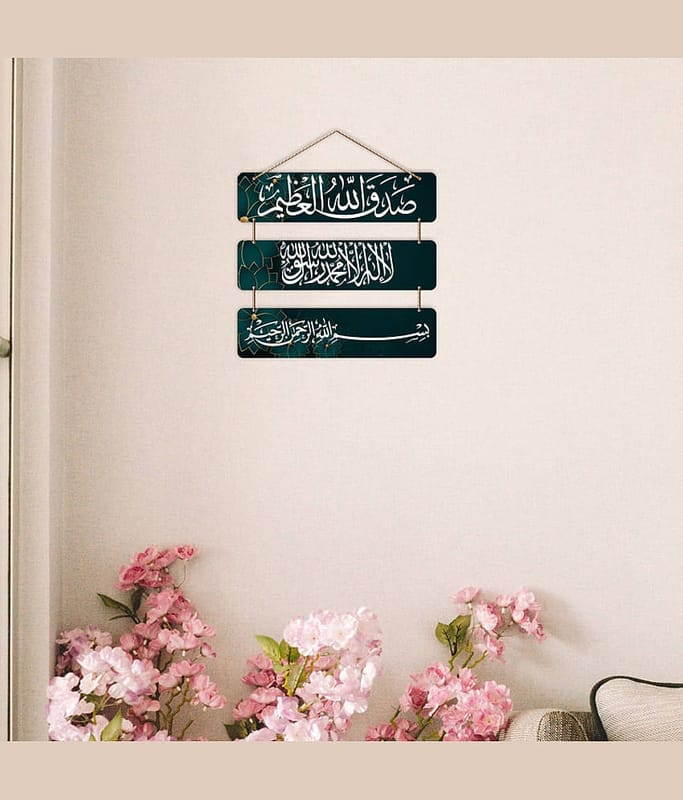 صدق الله العظيم
لا إله إلا الله محمد رسول الله
بسم الله الرحمن الرحيم